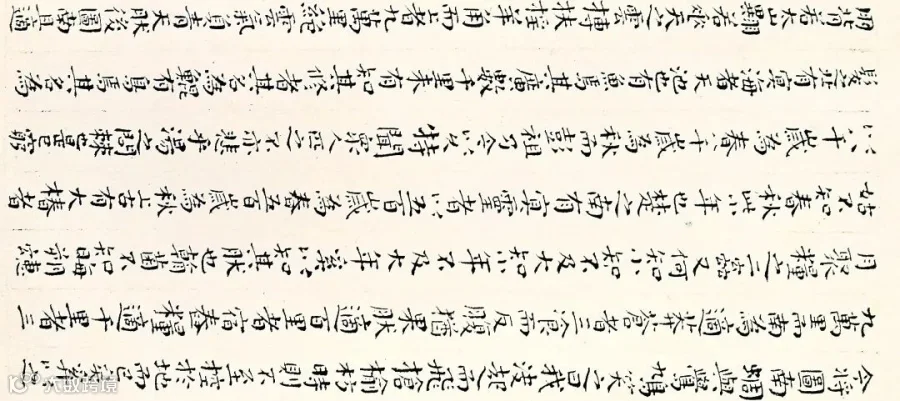 今将圖南蜩與鷽鳩笑之曰我決起而飛搶榆枋時則不至控於地而已矣奚以之
九萬里而南為適莽蒼者三飡而反腹猶果然適百里者宿舂糧適千里者三
月聚糧之二蟲又何知小知不及大知小年不及大年奚以知其然也朝菌不知晦朔蟪
蛄不知春秋此小年也楚之南有冥靈者以五百歲為春五百歲為秋上古有大椿者
以八千歲為春八千歲為秋而彭祖乃今以久特聞衆人匹之不亦悲乎湯之問棘也是已窮
髮之北有冥海者天池也有魚焉其廣數千里未有知其脩者其名為鯤有鳥焉其名為
鵬背若太山翼若垂天之雲搏扶搖羊角而上者九萬里絕雲氣負青天然後圖南且適
大数跨境